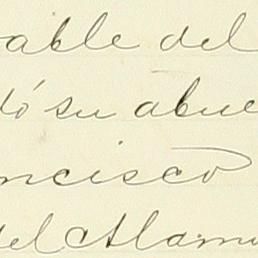 able del
dó su abue
ncisco
del Alam